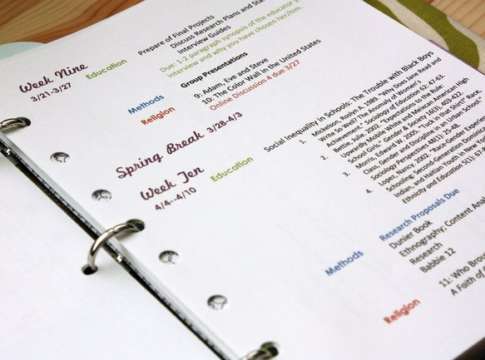 Prepare of Final Projects
Discuss Research Plans and
Interview Guides
Week Nine
3/21-3/27
Education
Due: 1-2 paragraph synopsis of the educator
interview and why you have chosen
Methods
Group Presentations
Religion
9: Adam, Eve and Steve
10: The Color Wall in the United States
Online Discussion 4 due 3/27
Spring Break 3/28-4/3
Week Ten
4/4-4/10
Education
Social Inequality in Schools: The Trouble with Black Boys
1. Mickelson, Roslyn A. 1989. "Why Does Jane Read and
Write So Well? The Anomaly of Women's
2. Bettie, Julie. 2002. "Exceptions to the Rule:
Upwardly Mobile White and Mexican American High
School Girls." Gender & Society 16(3), 403-422.
3. Morris, Edward W. 2005. "Tuck in that Shirt!" Race,
Class, Gender and Discipline in an Urban School."
Sociology Perspectives, 48(1), 25-48.
4. Lopez, Nancy. 2002. "Race-Gender Experiences
Schooling: Second-Generation Dominican,
Indian, and Haitian Youth in New York
Ethnicity and Education 5(1): 67-
Methods
Research Proposals Due
Dunier Book
Ethnography; Content
Research
Babbie 12
Religion
11: Who
A Faith of